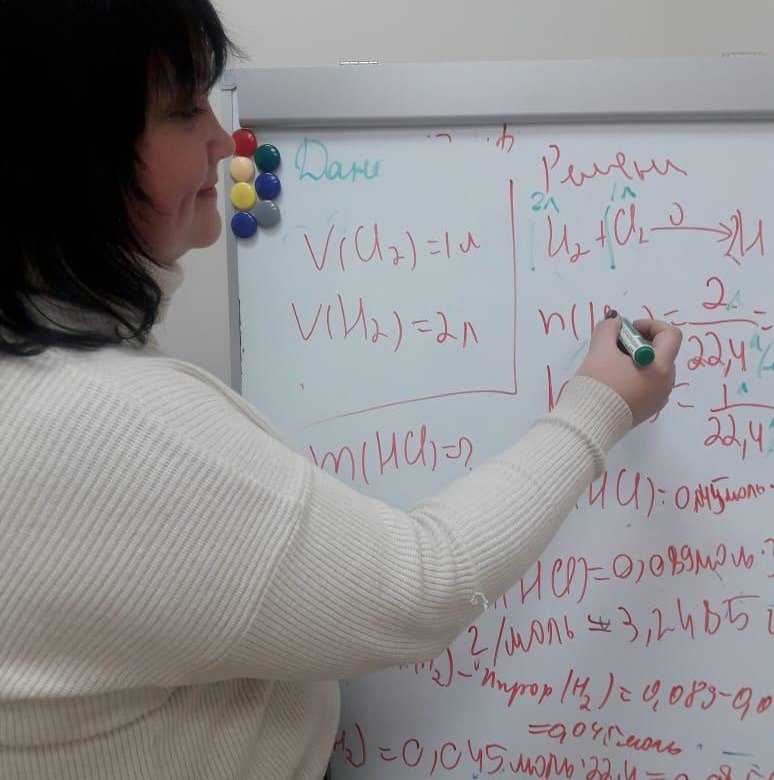 Дано
V(Cl₂)=1л
V(H₂)=2л
m(HCl)=?
2л 1л
H₂+Cl₂ → 2H
n(H = 2л =
22,4л/
= 1л
22,4л
HCl)=0,045моль·
HCl)=0,089моль·3
г/моль = 3,2485
)-nпрор(H₂)=0,089-0,0
=0,045моль
)=0,045моль·22,4=